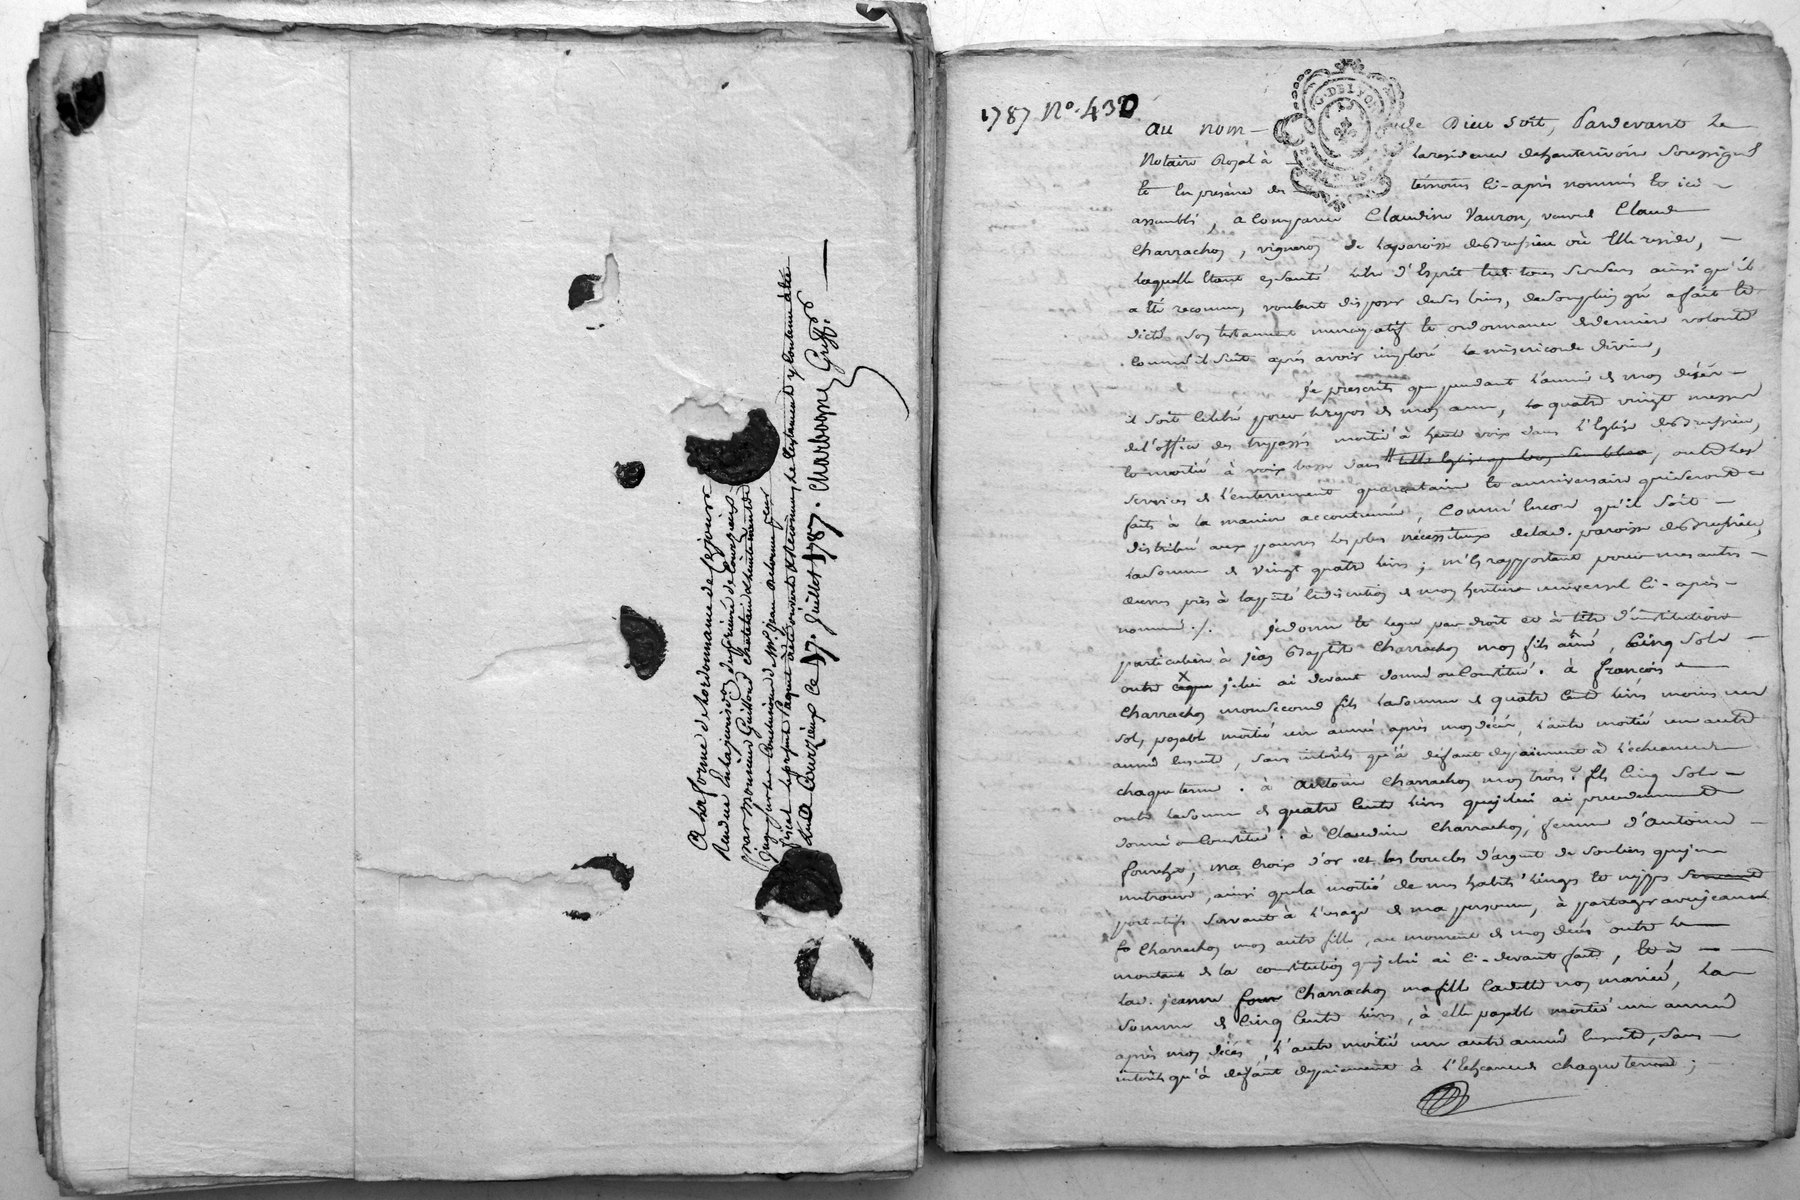 A la forme de l'ordonnance de ce jour
Rendue en la jurisdiction du prieuré de Courzieu
par Monsieur Guilloud chatelain lieutenant de
juge sur les Conclusions de Mr. Jean
fiscal le present Paquet a été ouvert le testament y contenu a été
Lu a Courzieux ce 17. Juillet 1787. Charbogne Greff.
1787 No. 430
G. DE LYON
au nom de Dieu soit, Pardevant Le
Notaire Royal à la residence de hauterivoire soussigné
et en presence des temoins ci-après nommés et ici
assemblés, a comparue Claudine Vauron, veuve Claude
Charrachon, vigneron de la paroisse de Brussieu où Elle reside,
laquelle étant en santé libre d'Esprit et de tous ses sens ainsi qu'il
a été reconnu, voulant disposer de ses biens, de son plein gré a fait et
dicté son testament nuncupatif et ordonnance de derniere volonté
comme il suit après avoir imploré la misericorde divine,
Je prescrits que pendant l'année de mon décés
il soit celebré pour le repos de mon ame, quatre vingt messes
de l'office des trepassés moitié à haute voix dans l'Eglise de Brussieu,
et moitié à voix basse dans lade Eglise, outre les
services de l'enterrement quarantaine et anniversaire qui seront
faits à la maniere accoutumée, comme Encore qu'il soit
distribué aux pauvres les plus necessiteux de lad. paroisse de Brussieu,
la somme de vingt quatre livres; m'en rapportant pour mes autres
œuvres pies à la pieté et discretion de mon heritier universel ci-après
nommé ./. Je donne et legue par droit et à titre d'institution
particuliere à jean Baptiste Charrachon mon fils ainé, cinq sols
outre ce que je lui ai devant donné ou Constitué. à françois
Charrachon mon second fils la somme de quatre cents livres moins un
sol, payable moitié une année après mon décés, l'autre moitié une autre
année ensuite, sans interêts qu'à défaut de paiement à l'echeance de
chaque terme. à Antoine Charrachon mon trois.e fils Cinq sols
outre la somme de quatre cents livres que je lui ai precedemment
donné ou Constitué. à Claudine Charrachon, femme d'Antoine
, ma Croix d'or et les boucles d'argent de souliers que je me
trouve, ainsi que la moitié de mes habits linges et nippes
portatifs servant à l'usage de ma personne, à partager avec jeanne
Charrachon mon autre fille, au moment de mon décés outre le
montant de la constitution que je lui ai ci-devant fait, et à
lad. jeanne Charrachon ma fille Cadette non mariée, la
somme de Cinq Cents livres, à elle payable moitié une année
après mon décés, l'autre moitié une autre année Ensuite, sans
interêts qu'à défaut de paiement à l'Echeance de chaque terme ;